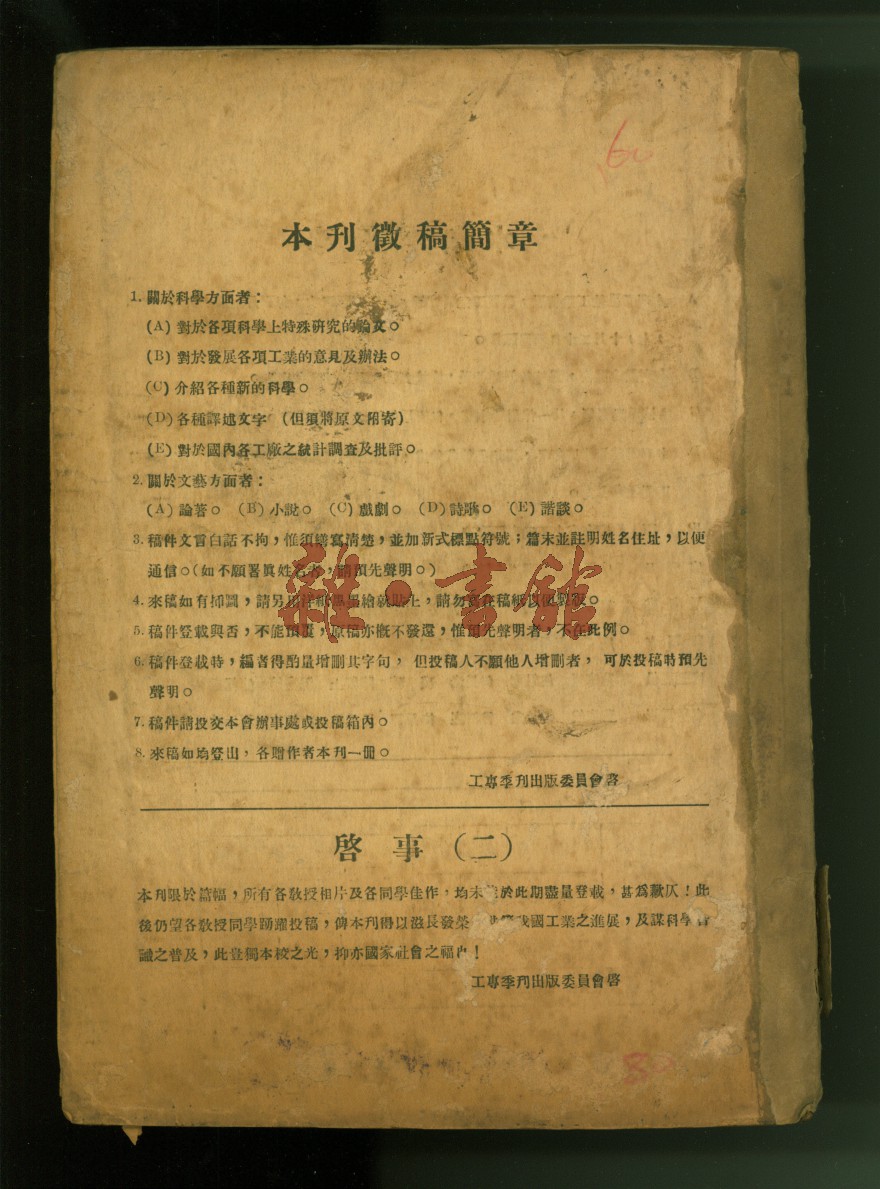 本刊徵稿簡章
1. 關於科學方面者：
(A) 對於各項科學上特殊研究的論文。
(B) 對於發展各項工業的意見及辦法。
(C) 介紹各種新的科學。
(D) 各種譯述文字 (但須將原文附寄)
(E) 對於國內各工廠之統計調查及批評。
2. 關於文藝方面者：
(A) 論著。 (B) 小說。 (C) 戲劇。 (D) 詩歌。 (E) 諧談。
3. 稿件文言白話不拘，惟須繕寫清楚，並加新式標點符號；篇末並註明姓名住址，以便
通信。(如不願署眞姓名者，請預先聲明。)
4. 來稿如有插圖，請另用洋紙墨筆繪就貼上，請勿畫在稿紙以便製版。
5. 稿件登載與否，不能預覆，原稿亦概不發還，惟預先聲明者，不在此例。
6. 稿件登載時，編者得酌量增刪其字句， 但投稿人不願他人增刪者， 可於投稿時預先
聲明。
7. 稿件請投交本會辦事處或投稿箱內。
8. 來稿如均登出，各贈作者本刊一冊。
工專季刊出版委員會啓
啓事(二)
本刊限於篇幅，所有各敎授相片及各同學佳作，均未 於此期盡量登載，甚爲歉仄！此
後仍望各敎授同學踴躍投稿，俾本刊得以滋長發榮 我國工業之進展，及謀科學智
識之普及，此豈獨本校之光，抑亦國家社會之福也！
工專季刊出版委員會啓
雜·書館
60
80